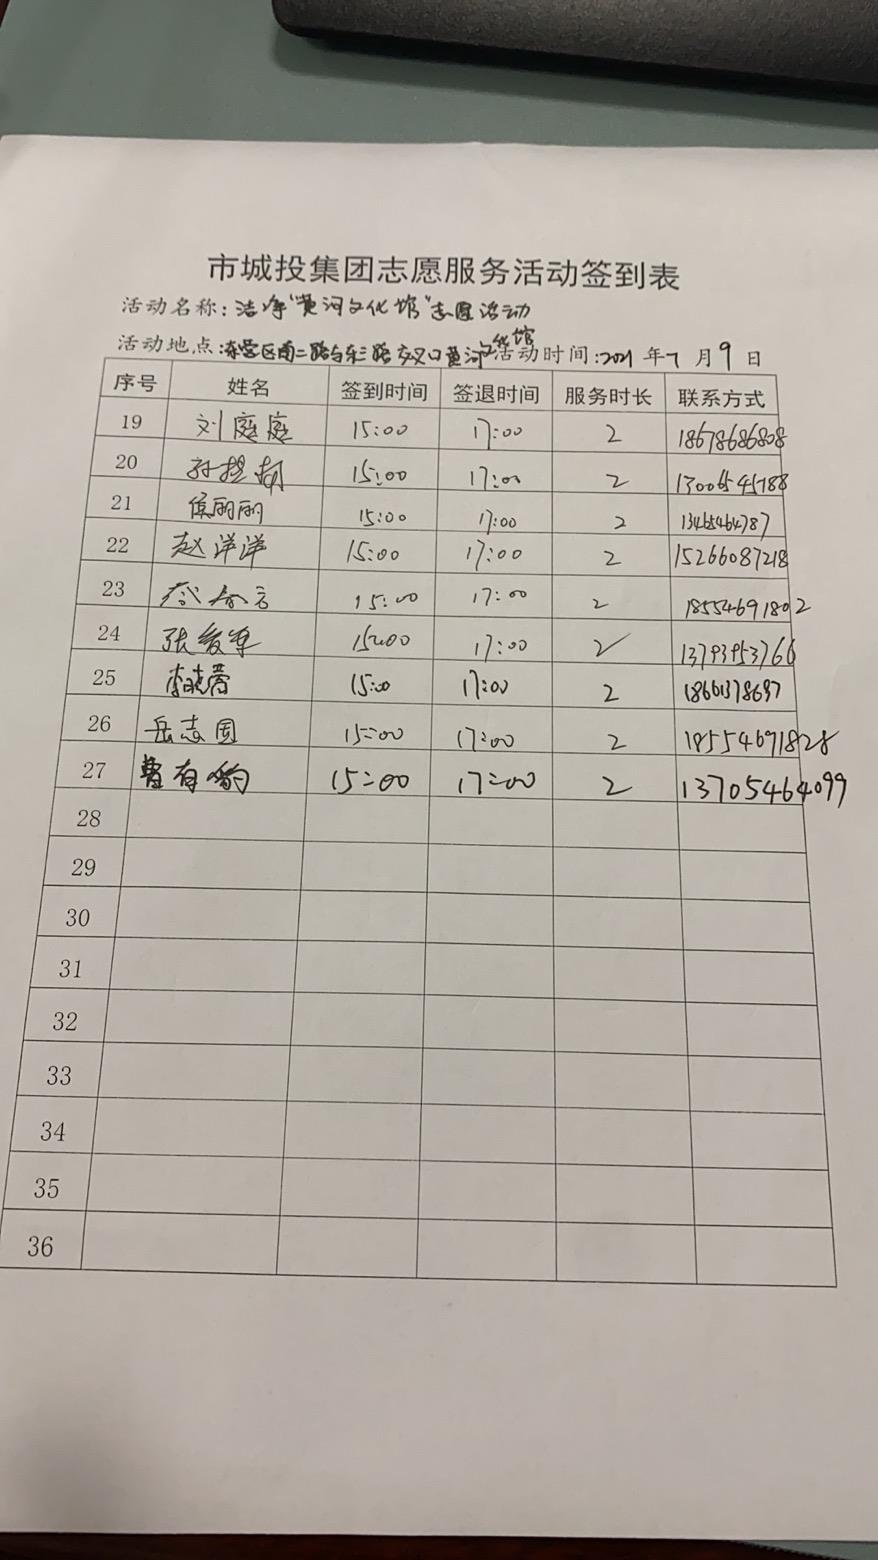 市城投集团志愿服务活动签到表
活动名称：洁净“黄河文化馆”志愿活动
活动地点：东营区南二路与东三路交叉口黄河文化馆 活动时间：2021年7月9日
序号 姓名 签到时间 签退时间 服务时长 联系方式
19 刘庭庭 15:00 17:00 2 18678686808
20 15:00 17:00 2 13006545788
21 侯丽丽 15:00 17:00 2 13465464787
22 赵洋洋 15:00 17:00 2 15266087218
23 15:00 17:00 2 18554691802
24 15:00 17:00 2 13793953766
25 李晓蕾 15:00 17:00 2
26 岳志国 15:00 17:00 2 18554691828
27 曹有 15:00 17:00 2 13705464099
28
29
30
31
32
33
34
35
36